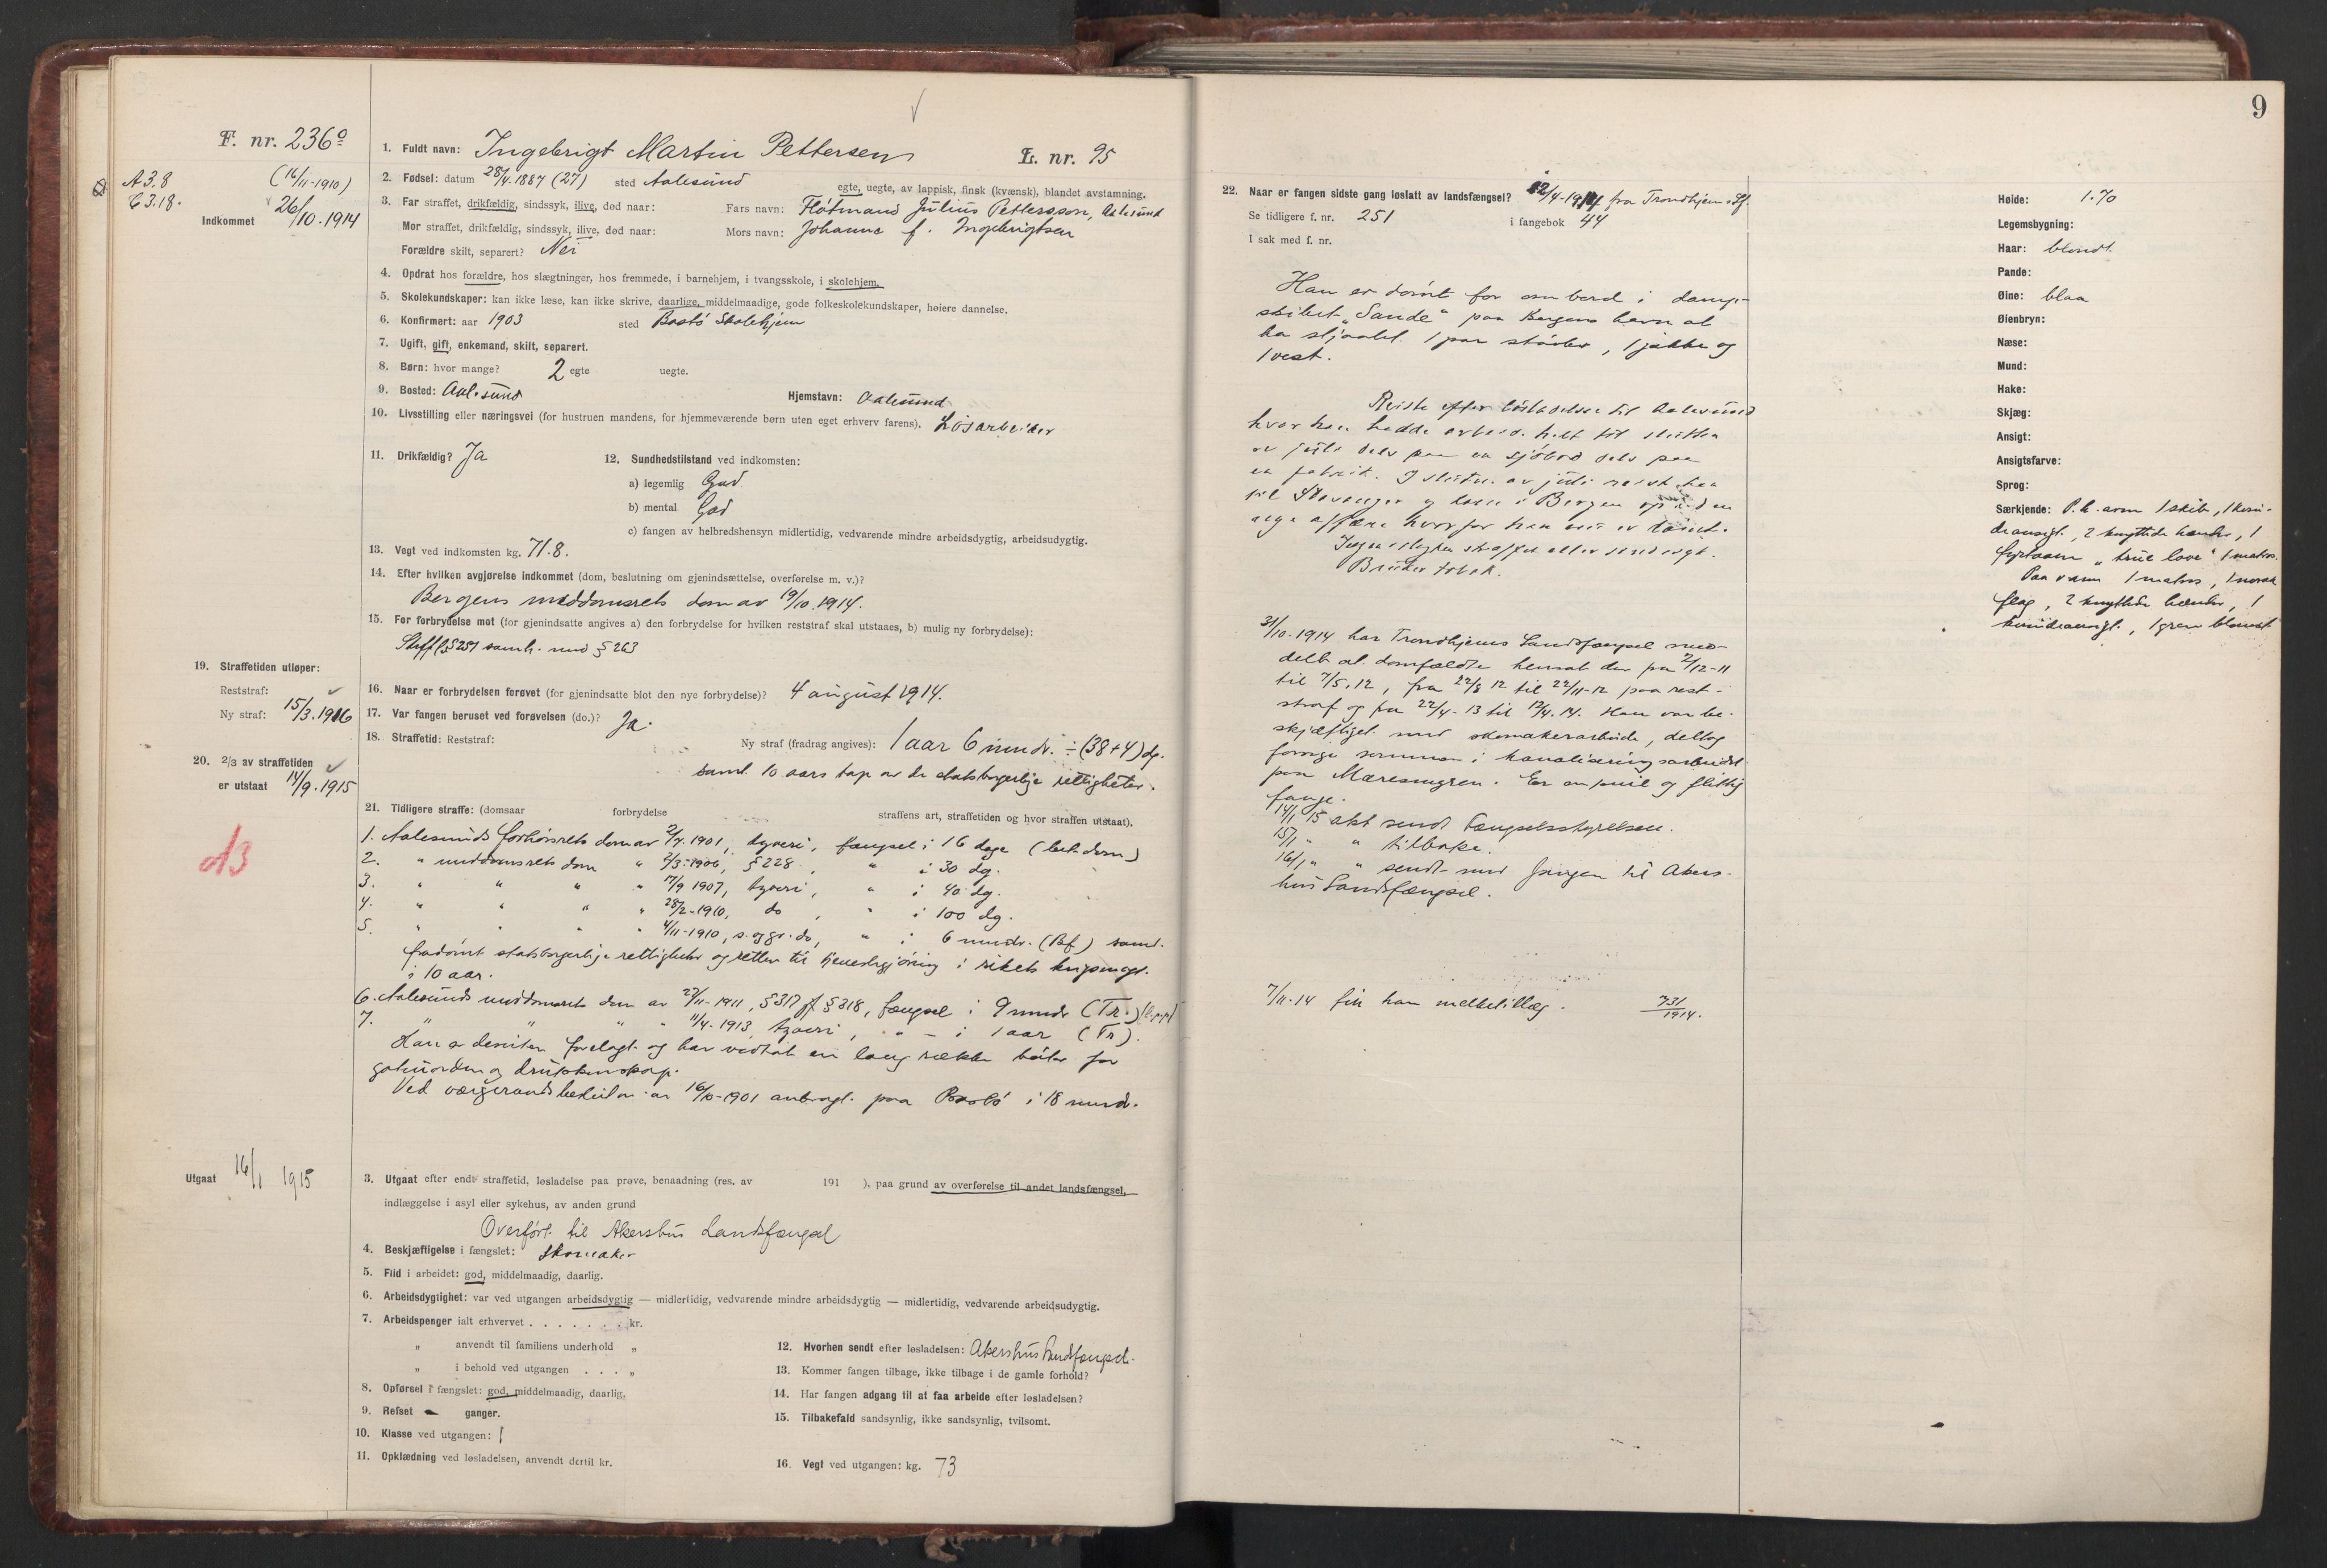 9
F. nr. 236º
A 3.8
C 3.18.
(16/11-1910)
Indkommet 26/10.1914
1. Fuldt navn: Ingebrigt Martin Pettersen L. nr. 95
2. Fødsel: datum 28/4.1887 (27) sted Aalesund egte, uegte, av lappisk, finsk (kvænsk), blandet avstamning.
3. Far straffet, drikfældig, sindssyk, ilive, død naar: Fars navn: Fløtmand Julius Pettersson, Aalesund
Mor straffet, drikfældig, sindssyk, ilive, død naar: Mors navn: Johanne f. Ingebrigtsen
Forældre skilt, separert? Nei
4. Opdrat hos forældre, hos slægtninger, hos fremmede, i barnehjem, i tvangsskole, i skolehjem.
5. Skolekundskaper: kan ikke læse, kan ikke skrive, daarlige, middelmaadige, gode folkeskolekundskaper, høiere dannelse.
6. Konfirmert: aar 1903 sted Bastø Skolehjem
7. Ugift, gift, enkemand, skilt, separert.
8. Børn: hvor mange? 2 egte uegte.
9. Bosted: Aalesund Hjemstavn: Aalesund
10. Livsstilling eller næringsvei (for hustruen mandens, for hjemmeværende børn uten eget erhverv farens). Løsarbeider
11. Drikfældig? Ja 12. Sundhedstilstand ved indkomsten:
a) legemlig God
b) mental God
c) fangen av helbredshensyn midlertidig, vedvarende mindre arbeidsdygtig, arbeidsudygtig.
13. Vegt ved indkomsten kg. 71.8.
14. Efter hvilken avgjørelse indkommet (dom, beslutning om gjenindsættelse, overførelse m. v.)?
Bergens meddomsrets dom av 19/10.1914.
15. For forbrydelse mot (for gjenindsatte angives a) den forbrydelse for hvilken reststraf skal utstaaes, b) mulig ny forbrydelse):
Strffl. § 257 samh. med § 263
16. Naar er forbrydelsen forøvet (for gjenindsatte blot den nye forbrydelse)? 4 august 1914.
17. Var fangen beruset ved forøvelsen (do.)? Ja.
18. Straffetid: Reststraf: Ny straf (fradrag angives): 1 aar 6 mndr. ÷ (38+4) dg.
saml. 10 aars tap av de statsborgerlige rettigheter.
19. Straffetiden utløper:
Reststraf:
Ny straf: 15/3.1916
20. 2/3 av straffetiden
er utstaat 14/9.1915
21. Tidligere straffe: (domsaar forbrydelse straffens art, straffetiden og hvor straffen utstaat).
1. Aalesunds forhørsrets dom av 2/4.1901, tyveri, fængsel i 16 dage (bet. dom)
2. " meddomsrets dom " 2/3-1906, § 228, " i 30 dg.
3. " " " " 17/9 1907, tyveri, " i 40 dg.
4. " " " " 28/2-1910, do, " i 100 dg.
5. " " " " 4/11-1910, s. og gr. do, " i 6 mndr. (Bf) saml.
fradømt statsborgerlige rettigheter og retten til tjenestegjøring i rikets krigsmagt
i 10 aar.
6. Aalesunds meddomsrets dom av 27/11-1911, § 317 jf § 318, fængsel i 9 mndr (Tr.)
7. " " " " 11/4-1913 tyveri, " i 1 aar (Tr).
Han er desuten forelagt og har vedtat en lang række bøter for
gateuorden og drukkenskap.
Ved værgeraadsbeslutn. av 16/10-1901 anbragt paa Bastø i 18 mnd.
A3
Utgaat 16/1 1915
3. Utgaat efter endt straffetid, løsladelse paa prøve, benaadning (res. av 191 ), paa grund av overførelse til andet landsfængsel,
indlæggelse i asyl eller sykehus, av anden grund
Overført til Akershus Landsfængsel
4. Beskjæftigelse i fængslet: skomaker
5. Flid i arbeidet: god, middelmaadig, daarlig.
6. Arbeidsdygtighet: var ved utgangen arbeidsdygtig — midlertidig, vedvarende mindre arbeidsdygtig — midlertidig, vedvarende arbeidsudygtig.
7. Arbeidspenger ialt erhvervet . . . . . . . kr.
" anvendt til familiens underhold "
" i behold ved utgangen . . . "
8. Opførsel i fængslet: god, middelmaadig, daarlig.
9. Refset - ganger.
10. Klasse ved utgangen: I
11. Opklædning ved løsladelsen, anvendt dertil kr.
12. Hvorhen sendt efter løsladelsen: Akershus Landsfængsel.
13. Kommer fangen tilbage, ikke tilbage i de gamle forhold?
14. Har fangen adgang til at faa arbeide efter løsladelsen?
15. Tilbakefald sandsynlig, ikke sandsynlig, tvilsomt.
16. Vegt ved utgangen: kg. 73
22. Naar er fangen sidste gang løslatt av landsfængsel? 12/4-1914 fra Trondhjems Lf.
Se tidligere f. nr. 251 i fangebok 44
I sak med f. nr.
Han er dømt for ombord i damp-
skibet "Sande" paa Bergens havn at
ha stjaalet 1 par støvler, 1 jakke og
1 vest.
Reiste efter løsladelsen til Aalesund
hvor han hadde arbeid helt til slutten
av juli dels paa en sjøbod dels paa
en fabrik. I slutn. av juli reiste han
til Stavanger og kom i Bergen op i den
nye affære hvorfor han nu er dømt.
Ingen slegtn straffet eller sindssygt.
Bruker tobak.
31/10.1914 har Trondhjems Landsfængsel med-
delt at domfældte hensat der fra 2/12-11
til 7/5.12, fra 22/8 12 til 22/11-12 paa rest-
straf og fra 22/4-13 til 12/4.14. Han var be-
skjæftiget med skomakerarbeide, deltog
forrige sommer i kanaliseringsarbeidet
paa Mæresmyren. Er en snil og flittig
fange.
14/1 15 akt sendt Fængselsstyrelsen.
15/1 " " tilbake.
16/1 " " sendt med fangen til Akers-
hus Landsfængsel.
7/11-14 fik han melketillæg. 731/1914.
Høide: 1.70
Legemsbygning:
Haar: blondt
Pande:
Øine: blaa
Øienbryn:
Næse:
Mund:
Hake:
Skjæg:
Ansigt:
Ansigtsfarve:
Sprog:
Særkjende: P. h. arm 1 skib, 1 kvin-
deansigt, 2 knyttede hænder, 1
fyrtaarn "true love" 1 matros.
Paa v arm 1 matros, 1 norsk
flag, 2 knyttede hænder, 1
kvindeansigt, 1 gren blomst